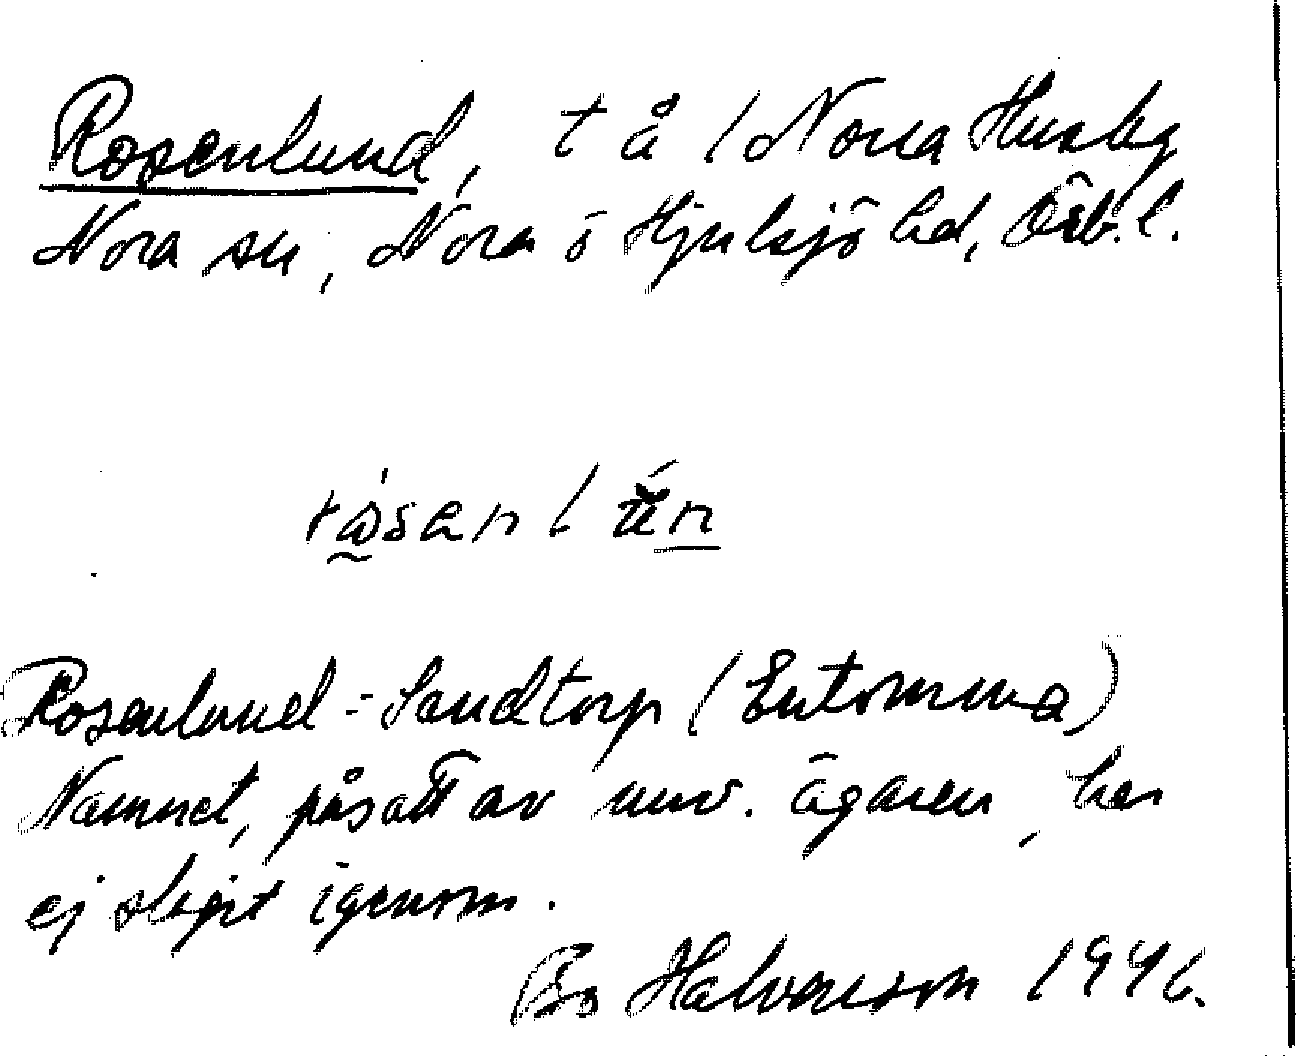 Rosenlund, t å 1 Norra Husby
Nora sn, Nora o Hjulsjö hd, Öreb. l.
Rosenlund = Sandtorp (Entomma)
Namnet, påsatt av nuv. ägaren, har
ej slagit igenom.
Bo Halvarsson 1946.